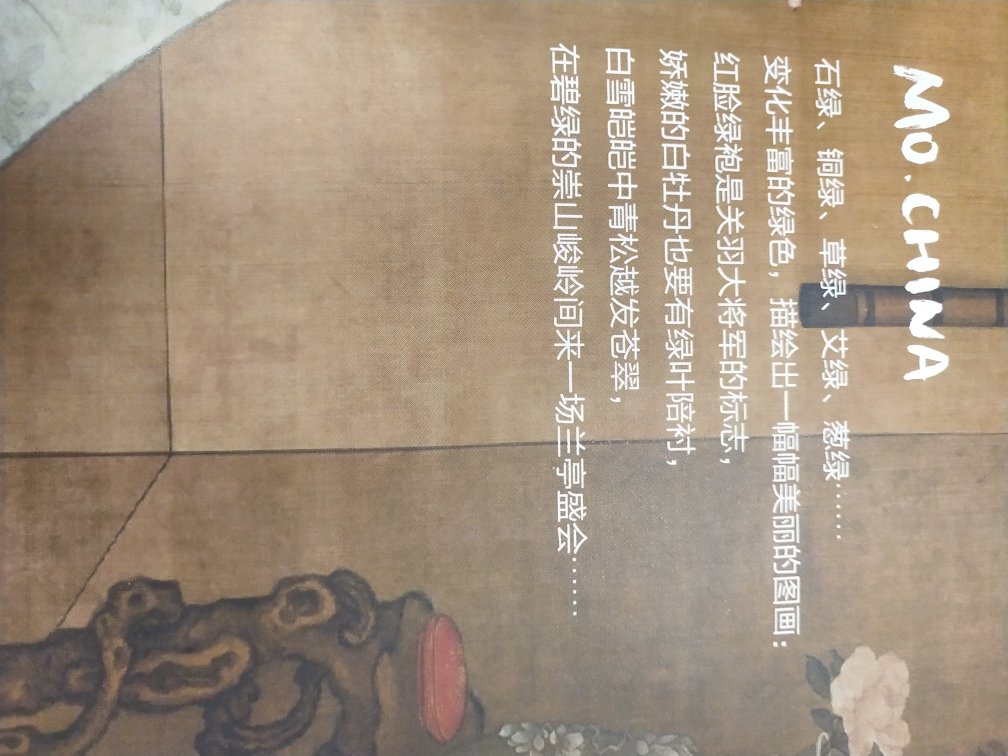 MO.CHINA
石绿、铜绿、草绿、艾绿、葱绿……
变化丰富的绿色，描绘出一幅幅美丽的图画：
红脸绿袍是关羽大将军的标志，
娇嫩的白牡丹也要有绿叶陪衬，
白雪皑皑中青松越发苍翠，
在碧绿的崇山峻岭间来一场兰亭盛会……